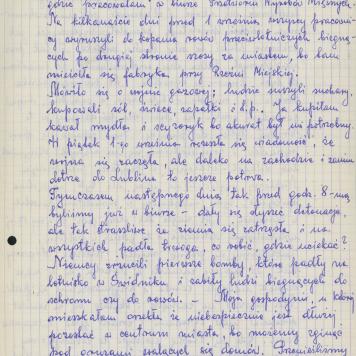 gdzie pracowałam w biurze
Na kilkanaście dni przed 1 września wszyscy pracowni-
cy wyruszyli do kopania rowów przeciwlotniczych biegną-
cych po drugiej stronie szosy za miastem, bo tam
mieściła się fabryka, przy Rzeźni Miejskiej.
Mówiło się o wojnie gazowej; ludzie suszyli suchary,
kupowali sól, świece, zapałki i t.p. Ja kupiłam
kawał mydła i scyzoryk bo akurat był mi potrzebny.
W piątek 1-go września rozeszła się wiadomość, że
wojna się zaczęła, ale daleko na zachodzie i zanim
dotrze do Lublina to jeszcze potrwa.
Tymczasem następnego dnia, tak przed godz. 8-mą
byliśmy już w biurze - dały się słyszeć detonacje,
ale tak straszliwe że ziemia się zatrzęsła i na
wszystkich padła trwoga, co robić, gdzie uciekać?
Niemcy zrzucili pierwsze bomby, które padły na
lotnisko w Świdniku i zabiły ludzi biegnących do
schronu czy do rowów. - Moja gospodyni, u której
mieszkałam orzekła że niebezpiecznie jest dłużej
pozostać w centrum miasta, bo możemy zginąć
pod gruzami walących się domów. Przenieśliśmy